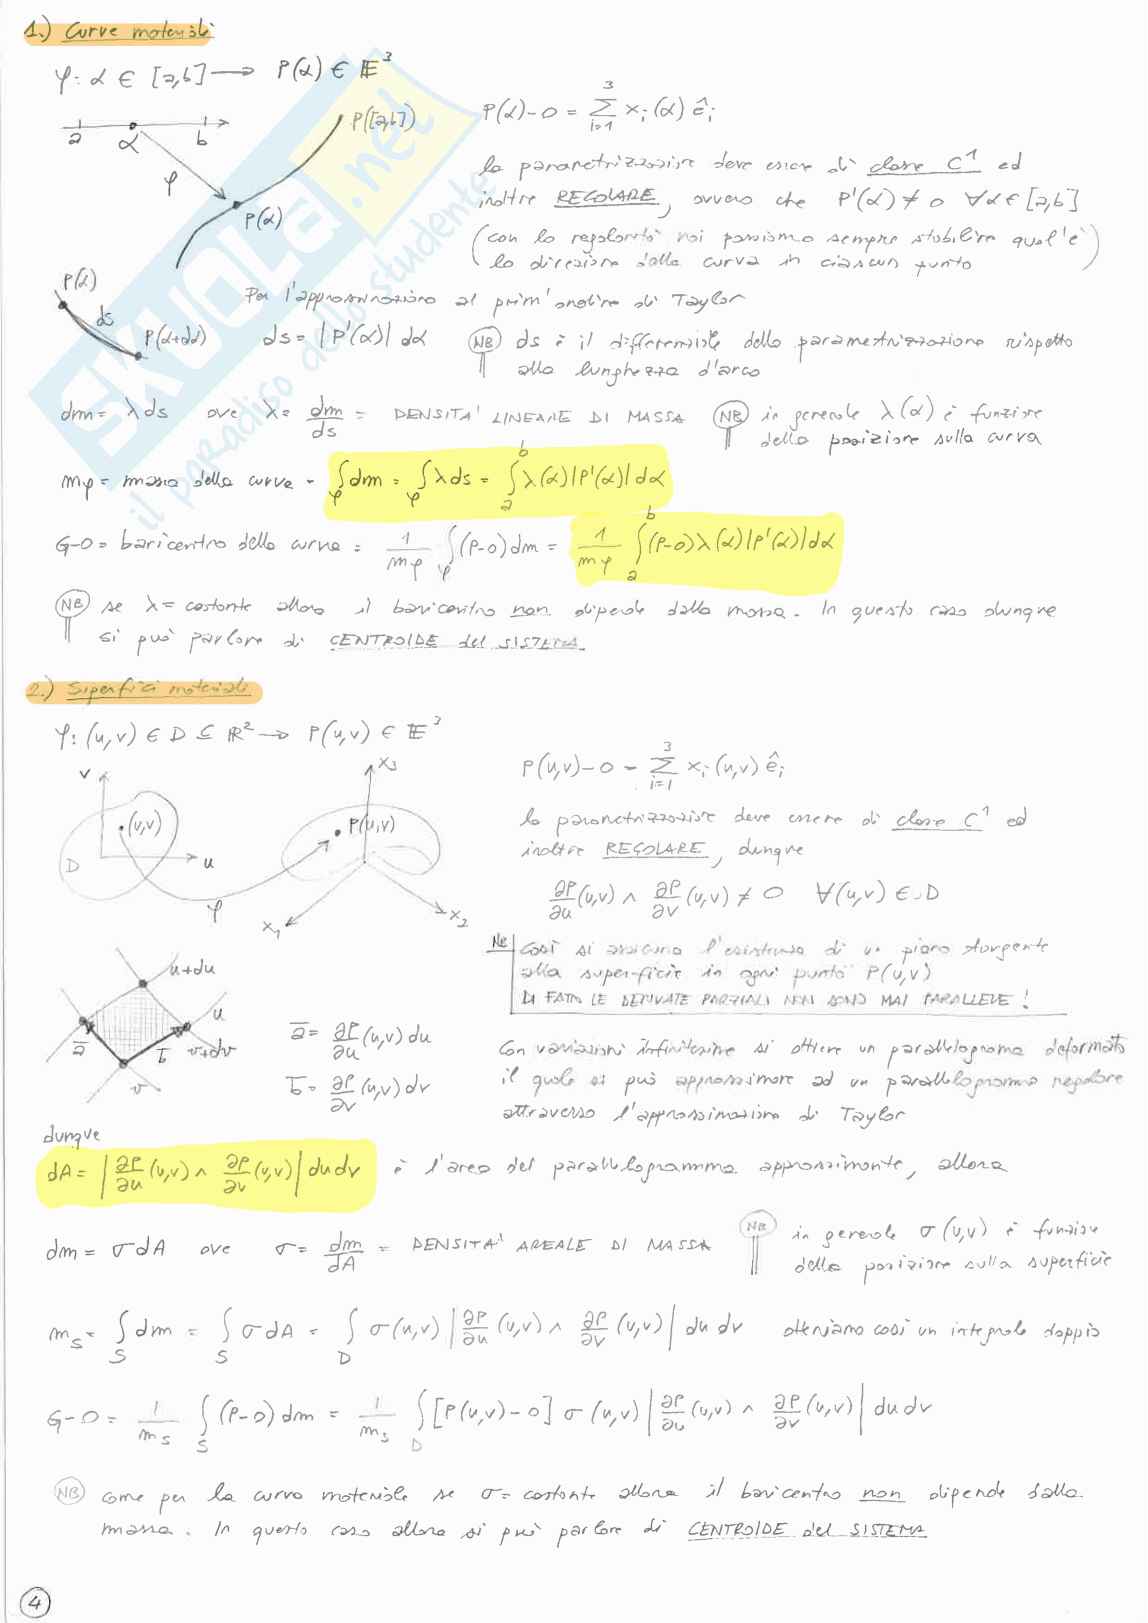 1.) Curve materiali
φ: α ∈ [a,b] → P(α) ∈ E³
P([a,b])
a α b
φ
P(α)
P(α)-O = Σ_{i=1}^{3} x_i(α) ê_i
la parametrizzazione deve essere di classe C¹ ed
inoltre REGOLARE, ovvero che P'(α) ≠ 0 ∀α ∈ [a,b]
(con la regolarità noi possiamo sempre stabilire qual'è
la direzione della curva in ciascun punto)
P(α)
ds
P(α+dα)
Per l'approssimazione al prim'ordine di Taylor
ds = |P'(α)| dα
NB ds è il differenziale della parametrizzazione rispetto
alla lunghezza d'arco
dm = λ ds ove λ = dm/ds = DENSITA' LINEARE DI MASSA
NB in generale λ(α) è funzione
della posizione sulla curva
mφ = massa della curva = ∫_φ dm = ∫_φ λ ds = ∫_a^b λ(α)|P'(α)| dα
G-O = baricentro della curva = 1/mφ ∫_φ (P-O) dm = 1/mφ ∫_a^b (P-O) λ(α)|P'(α)| dα
NB se λ = costante allora il baricentro non dipende dalla massa. In questo caso dunque
si può parlare di CENTROIDE del SISTEMA
2.) Superfici materiali
φ: (u,v) ∈ D ⊆ R² → P(u,v) ∈ E³
v
(u,v)
D
u
φ
x₃
P(u,v)
x₁
x₂
P(u,v)-O = Σ_{i=1}^{3} x_i(u,v) ê_i
la parametrizzazione deve essere di classe C¹ ed
inoltre REGOLARE, dunque
∂P/∂u (u,v) ∧ ∂P/∂v (u,v) ≠ 0 ∀(u,v) ∈ D
NB Così si assicura l'esistenza di un piano tangente
alla superficie in ogni punto P(u,v)
DI FATTO LE DERIVATE PARZIALI NON SONO MAI PARALLELE!
u+du
u
a
b
v+dv
v
a = ∂P/∂u (u,v) du
b = ∂P/∂v (u,v) dv
Con variazioni infinitesime si ottiene un parallelogramma deformato
il quale si può approssimare ad un parallelogramma regolare
attraverso l'approssimazione di Taylor
dunque
dA = |∂P/∂u (u,v) ∧ ∂P/∂v (u,v)| du dv è l'area del parallelogramma approssimante, allora
dm = σ dA ove σ = dm/dA = DENSITA' AREALE DI MASSA
NB in generale σ(u,v) è funzione
della posizione sulla superficie
m_S = ∫_S dm = ∫_S σ dA = ∫_D σ(u,v) |∂P/∂u (u,v) ∧ ∂P/∂v (u,v)| du dv otteniamo così un integrale doppio
G-O = 1/m_S ∫_S (P-O) dm = 1/m_S ∫_D [P(u,v)-O] σ(u,v) |∂P/∂u (u,v) ∧ ∂P/∂v (u,v)| du dv
NB come per la curva materiale se σ = costante allora il baricentro non dipende dalla
massa. In questo caso allora si può parlare di CENTROIDE del SISTEMA
4
SKUOLA.net
il paradiso dello studente